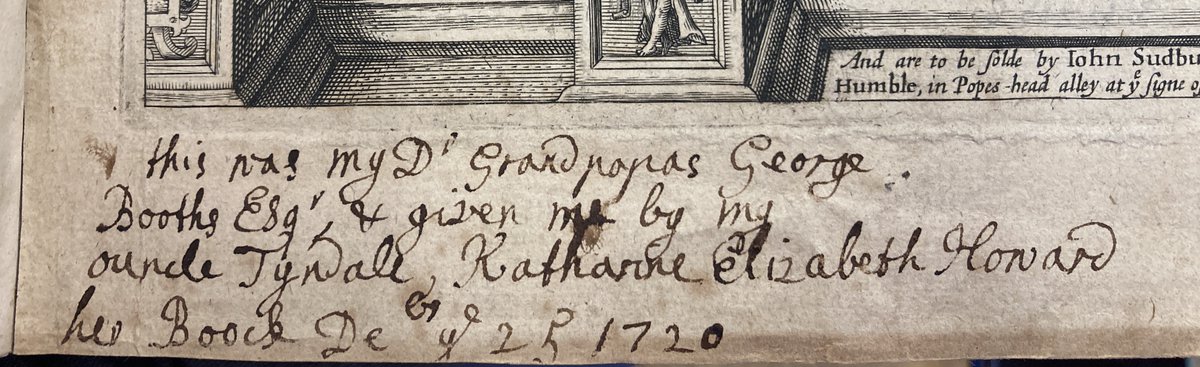 And are to be ſolde by Iohn Sudbu
Humble, in Popes-head alley at yͤ ſigne of
this was my Dʳ Grandpopas George
Booths Esqʳ, & given me by my
ouncle Tyndale, Katharine Elizabeth Howard
her Boock Deᵇʳ yᵉ 25 1720